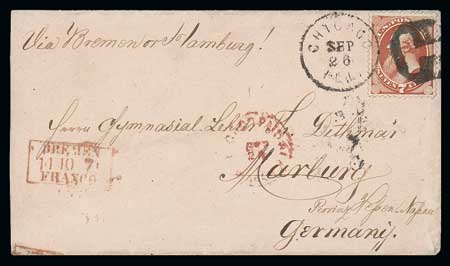 Via Bremen or Hamburg!
CHICAGO
SEP
26
ILL.
Herrn Gymnasial Lehrer F. Dithmar
BREMEN
14 10 7
FRANCO
Marburg
Provinz Hessen Nassau
Germany.